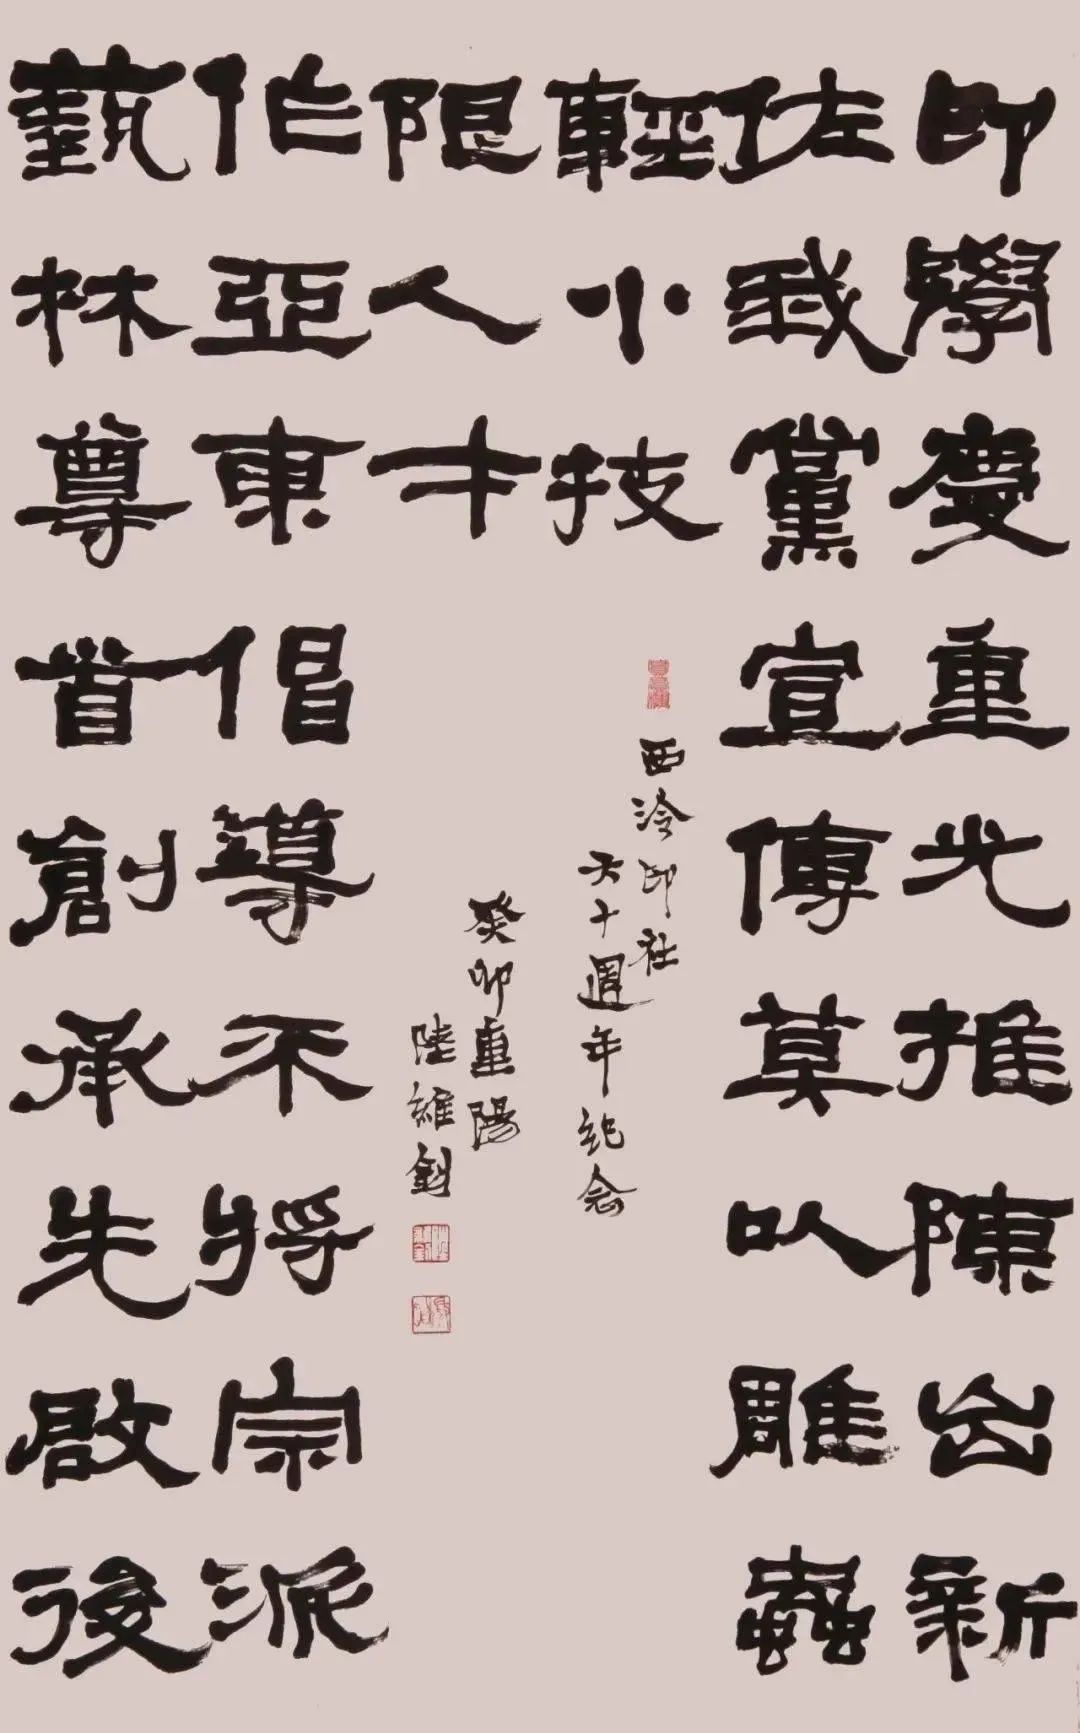 印學慶重光推陳出新
佐我黨宣傳莫以雕蟲
輕小技
藝林尊首創承先啟後
作亞東倡導不將宗派
限人才
西泠印社
六十週年紀念
癸卯重陽
陸維釗